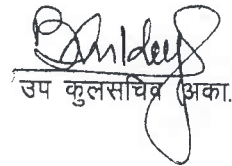 उप कुलसचिव (अका.